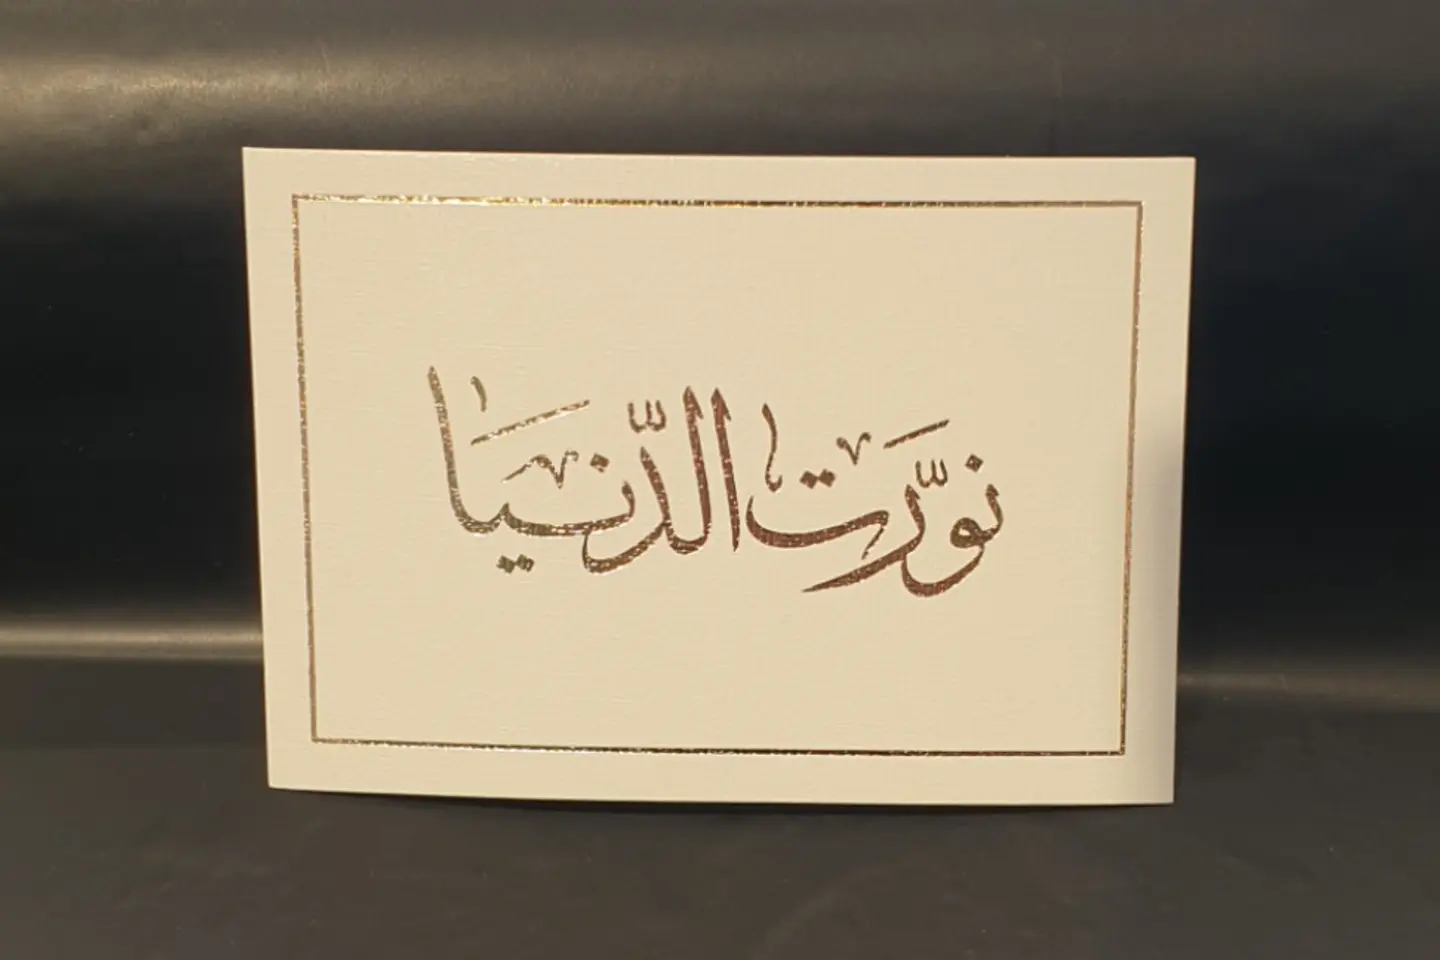 نوَّرت الدّنيَا